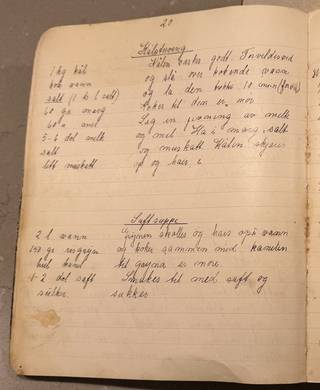 20
Kålstuving
1 kg kål
kok. vann
salt (1 ts l salt)
60 gr marg
60 " mel
5-6 dcl melk
salt
litt muskatt
Kålen vaskes godt. Forvelles ved
og slå over kokende vann
og la den trekke 10 min
Kokes til den er mør
Lag en jevning av melk
og mel. Ha i marg, salt
og muskatt. Kålen skjæres
op og haes i
Saftsuppe
2 l. vann
gr risgryn
hel kanel
1-2 dcl saft
sukker
Grynene skolles og haes opi vann
og kokes sammen med kanelen
til grynene er møre.
Smakes til med saft og
sukker